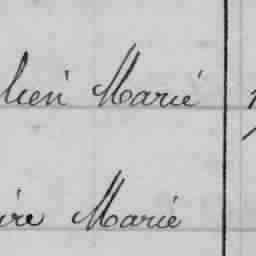 lien Marie
ire Marie